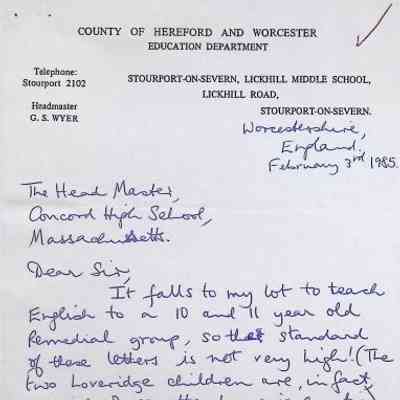 COUNTY OF HEREFORD AND WORCESTER
EDUCATION DEPARTMENT
Telephone:
Stourport 2102
Headmaster
G. S. WYER
STOURPORT-ON-SEVERN, LICKHILL MIDDLE SCHOOL,
LICKHILL ROAD,
STOURPORT-ON-SEVERN.
Worcestershire,
England.
February 3rd 1985.
The Head Master,
Concord High School,
Massachusetts.
Dear Sir,
It falls to my lot to teach
English to a 10 and 11 year old
Remedial group, so that standard
of these letters is not very high! (The
two Loveridge children are, in fact,